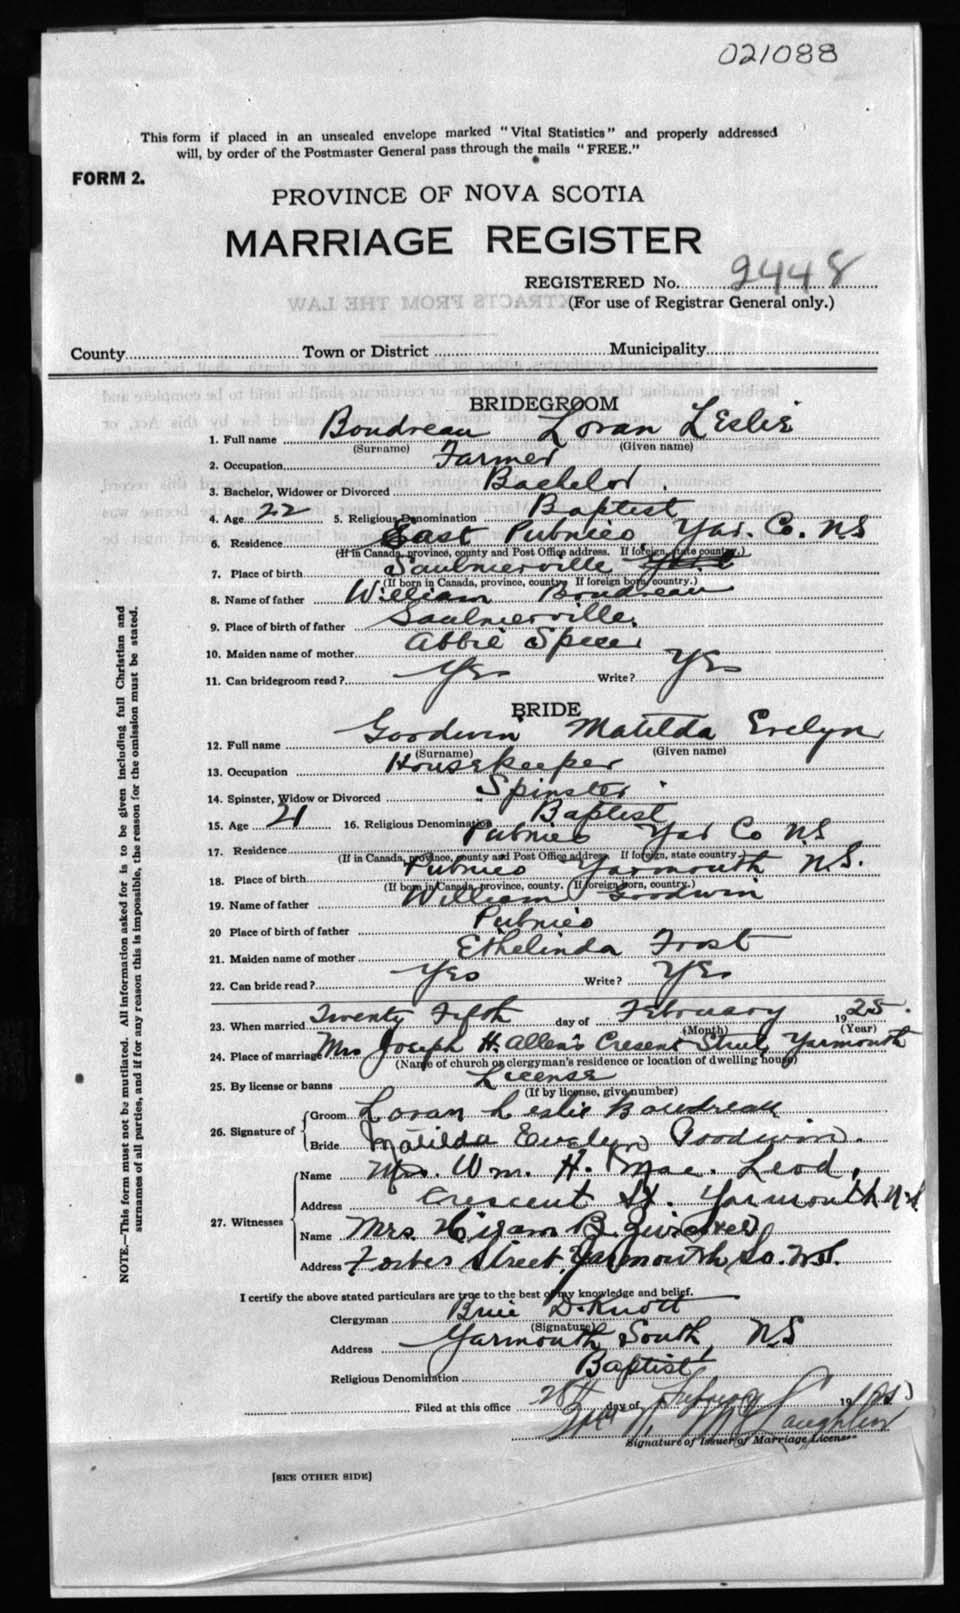 021088
This form if placed in an unsealed envelope marked "Vital Statistics" and properly addressed
will, by order of the Postmaster General pass through the mails "FREE."
FORM 2.
PROVINCE OF NOVA SCOTIA
MARRIAGE REGISTER
REGISTERED No. 2448
(For use of Registrar General only.)
County Town or District Municipality
BRIDEGROOM
1. Full name Boudreau Loran Leslie
(Surname) (Given name)
2. Occupation Farmer
3. Bachelor, Widower or Divorced Bachelor
4. Age 22 5. Religious Denomination Baptist
6. Residence East Pubnico Yar. Co. NS
(If in Canada, province, county and Post Office address. If foreign, state country.)
7. Place of birth Saulnierville
(If born in Canada, province, county. If foreign born, country.)
8. Name of father William Boudreau
9. Place of birth of father Saulnierville
10. Maiden name of mother Abbie Spicer
11. Can bridegroom read? Yes Write? Yes
BRIDE
12. Full name Goodwin Matilda Evelyn
(Surname) (Given name)
13. Occupation Housekeeper
14. Spinster, Widow or Divorced Spinster
15. Age 21 16. Religious Denomination Baptist
17. Residence Pubnico Yar Co NS
(If in Canada, province, county and Post Office address. If foreign, state country.)
18. Place of birth Pubnico Yarmouth N.S.
(If born in Canada, province, county. If foreign born, country.)
19. Name of father William Goodwin
20 Place of birth of father Pubnico
21. Maiden name of mother Ethelinda Frost
22. Can bride read? Yes Write? Yes
23. When married Twenty Fifth day of February 1925.
(Month) (Year)
24. Place of marriage Mrs Joseph H. Allen's Cresent Street, Yarmouth
(Name of church or clergyman's residence or location of dwelling house)
25. By license or banns License
(If by license, give number)
26. Signature of Groom Loran Leslie Boudreau
Bride Matilda Evelyn Goodwin.
27. Witnesses Name Mrs. Wm. H. Mac. Leod,
Address Crescent St. Yarmouth N.S.
Name Mrs. Hiram B.
Address Forbes Street, Yarmouth So. N.S.
I certify the above stated particulars are true to the best of my knowledge and belief.
Clergyman D. Knott
(Signature)
Address Yarmouth South, NS
Religious Denomination Baptist
Filed at this office day of February 19
Signature of Issuer of Marriage License
[SEE OTHER SIDE]
NOTE.—This form must not be mutilated. All information asked for is to be given including full Christian and
surnames of all parties, and if for any reason this is impossible, the reason for the omission must be stated.